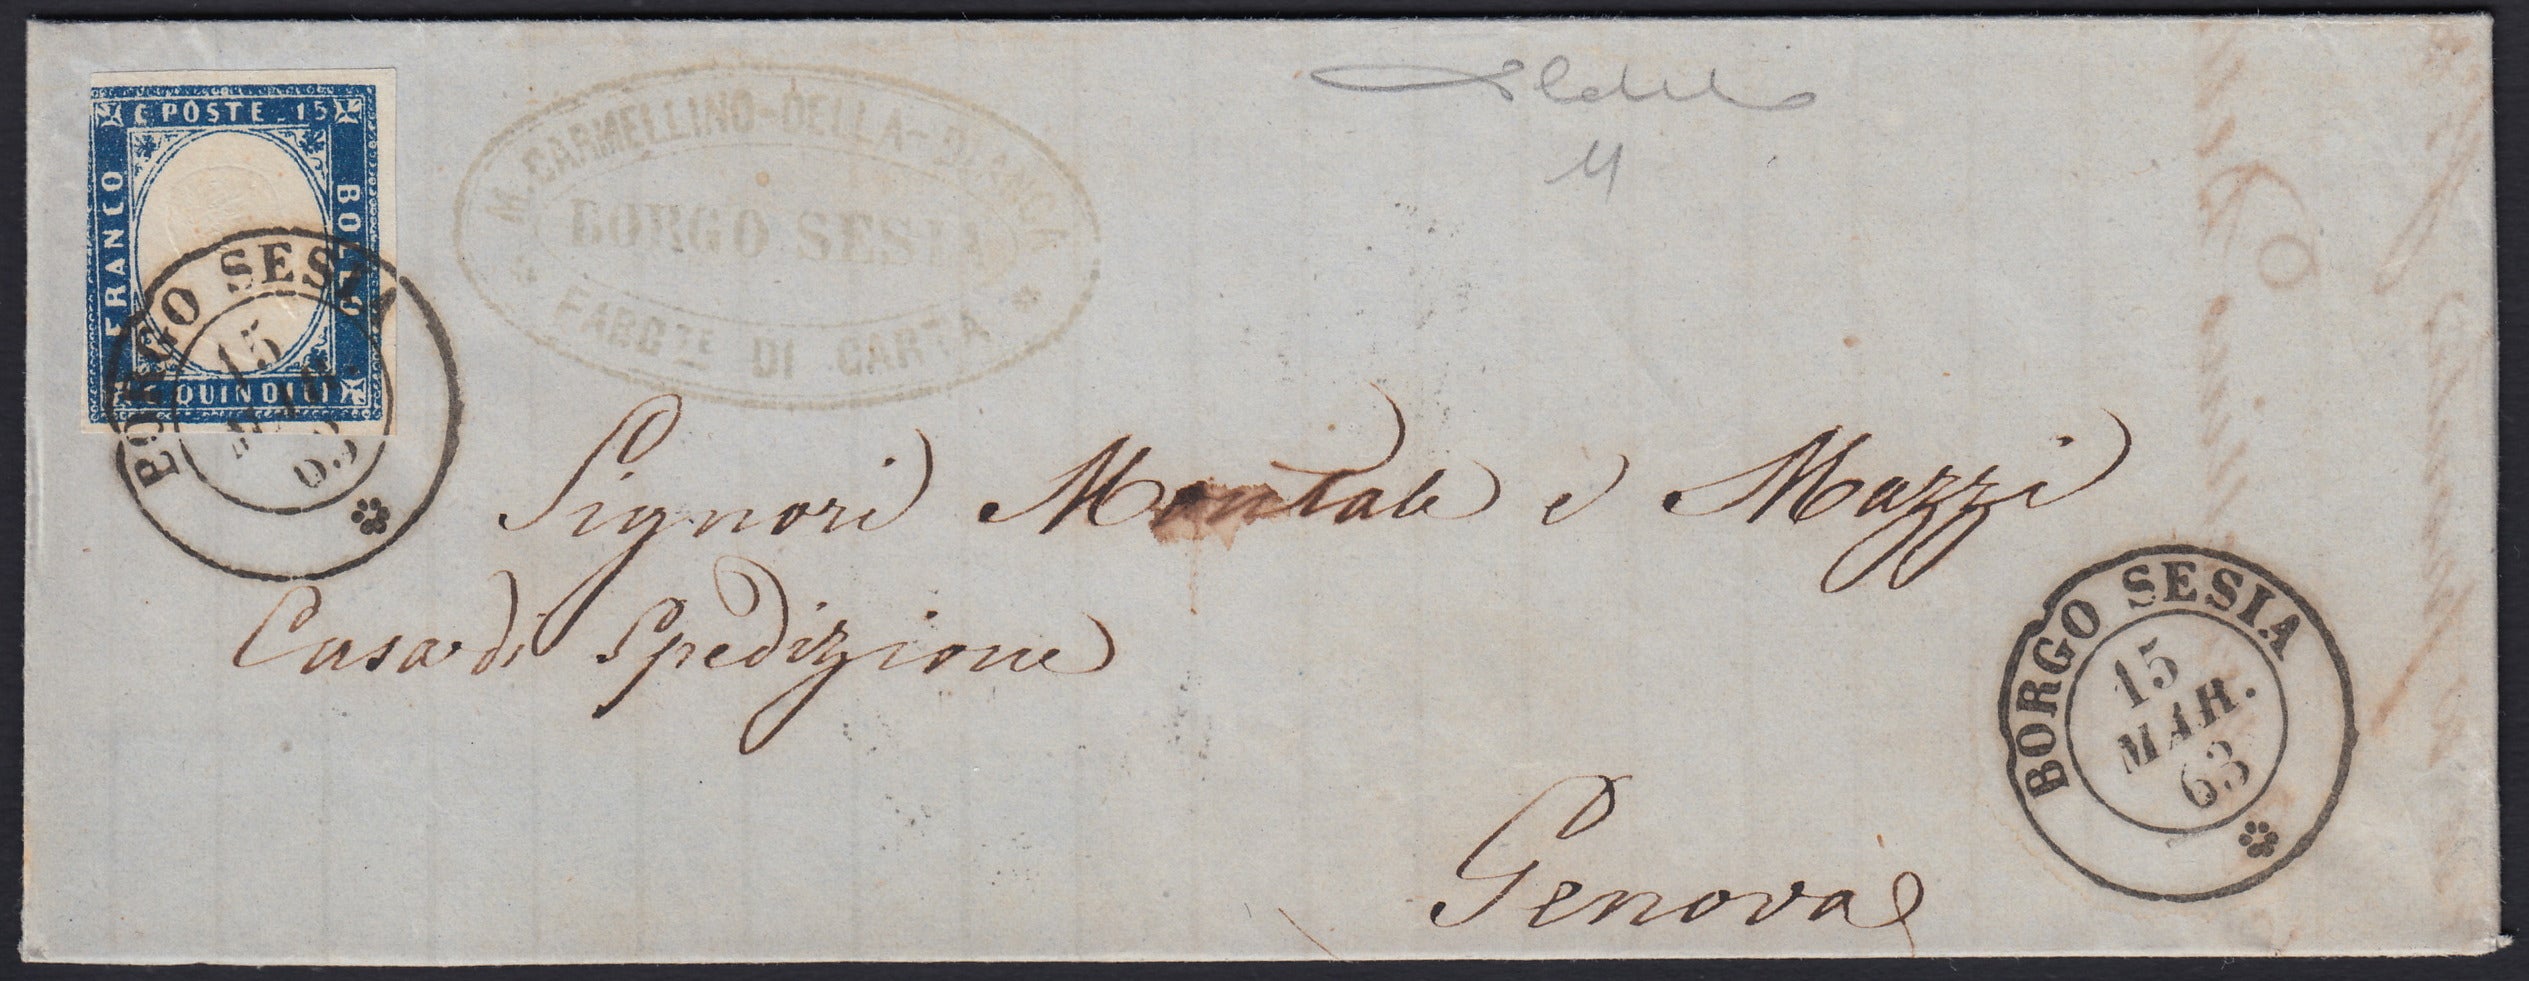 C POSTE - 15
FRANCO
BOLLO
C QUINDICI
BORGO SESIA
15
MAR.
63
M. CARMELLINO-DELLA-BIANCA
BORGO SESIA
FABBTE DI CARTA
Signori Montale e Mazzi
Casa di Spedizione
Genova
BORGO SESIA
15
MAR.
63